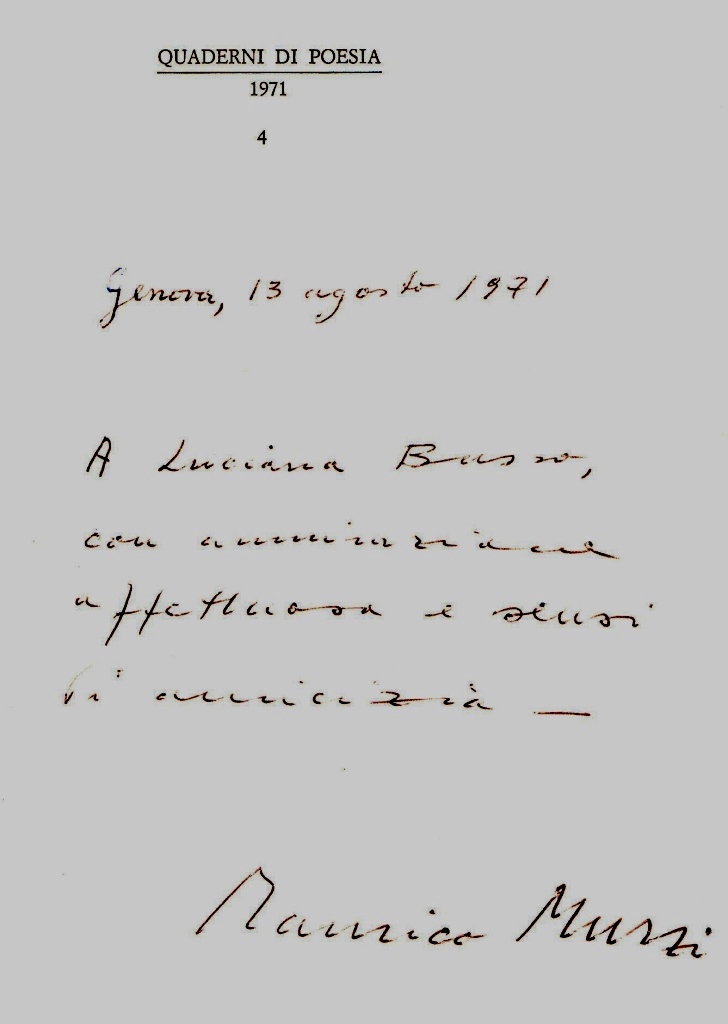 QUADERNI DI POESIA
1971
4
Genova, 13 agosto 1971
A Luciana Basso,
con ammirazione
affettuosa e sensi
di amicizia —